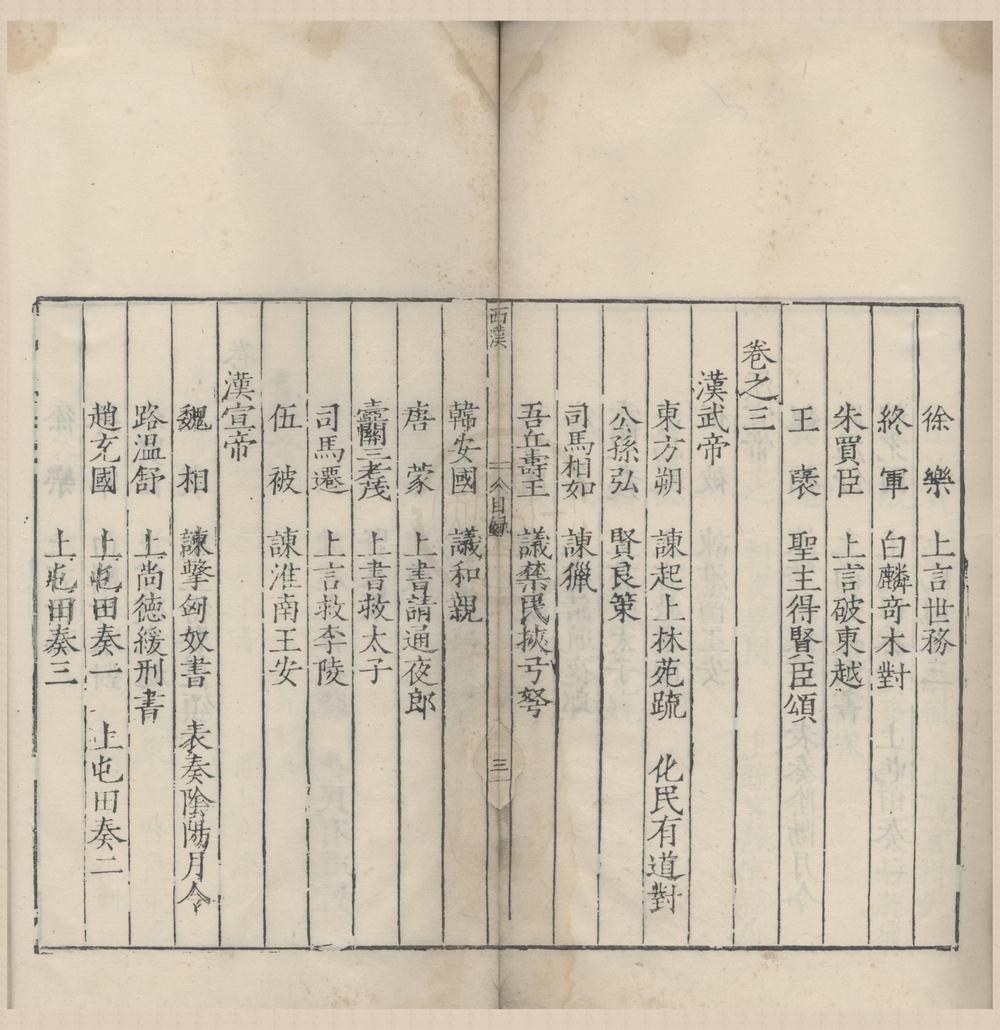 徐樂　上言世務
終軍　白麟竒木對
朱買臣　上言破東越
王襃　聖主得賢臣頌
卷之三
漢武帝
東方朔　諫起上林苑疏　化民有道對
公孫弘　賢良策
司馬相如　諫獵
吾丘壽王　議禁民挾弓弩
西漢　目録　三
韓安國　議和親
唐蒙　上書請通夜郎
壷關三老茂　上書救太子
司馬遷　上言救李陵
伍被　諫淮南王安
漢宣帝
魏相　諫擊匈奴書　表奏陰陽月令
路温舒　上尚德緩刑書
趙充國　上屯田奏一　上屯田奏二
上屯田奏三